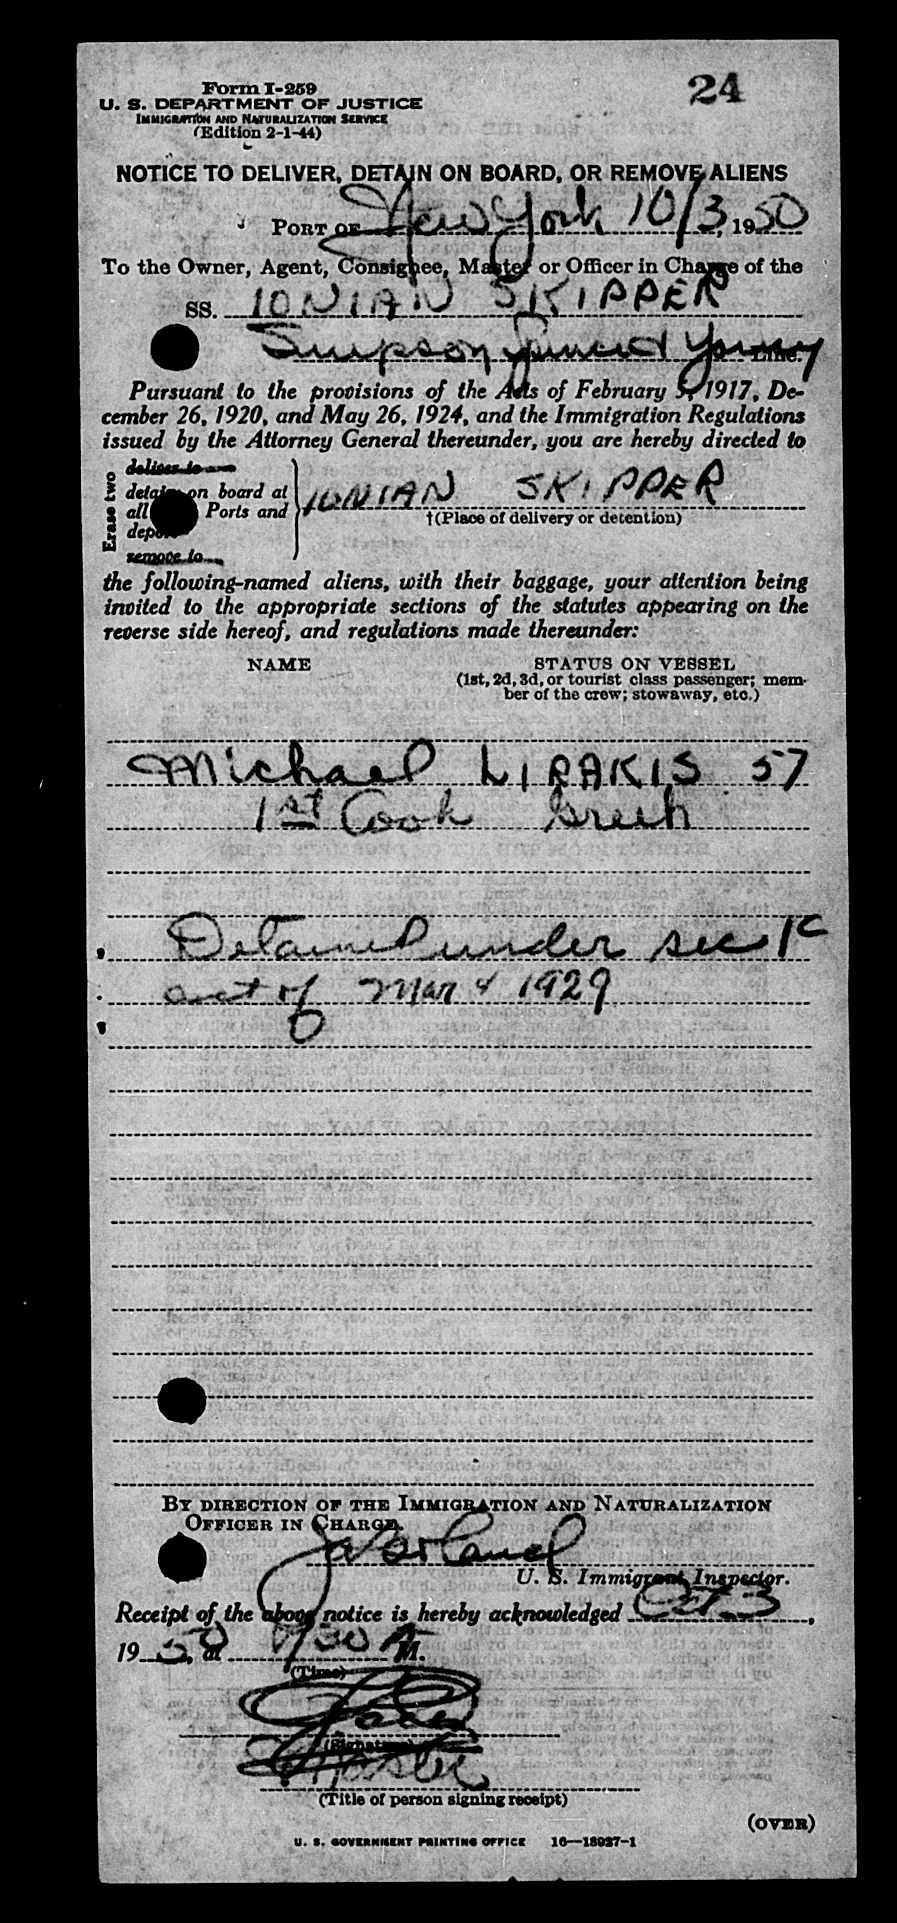 Form I-259
24
U. S. DEPARTMENT OF JUSTICE
IMMIGRATION AND NATURALIZATION SERVICE
(Edition 2-1-44)
NOTICE TO DELIVER, DETAIN ON BOARD, OR REMOVE ALIENS
PORT OF New York 10/3, 1950
To the Owner, Agent, Consignee, Master or Officer in Charge of the
SS. IONIAN SKIPPER
Simpson Spence & Young Line.
Pursuant to the provisions of the Acts of February 5, 1917, De-
cember 26, 1920, and May 26, 1924, and the Immigration Regulations
issued by the Attorney General thereunder, you are hereby directed to
Erase two
deliver to
detain on board at
all Ports and
depo
remove to
IONIAN SKIPPER
†(Place of delivery or detention)
the following-named aliens, with their baggage, your attention being
invited to the appropriate sections of the statutes appearing on the
reverse side hereof, and regulations made thereunder:
NAME
STATUS ON VESSEL
(1st, 2d, 3d, or tourist class passenger; mem-
ber of the crew; stowaway, etc.)
Michael LIRAKIS 57
1st Cook Greek
Detained under sec 1c
act of Mar 4 1929
BY DIRECTION OF THE IMMIGRATION AND NATURALIZATION
OFFICER IN CHARGE.
U. S. Immigrant Inspector.
Receipt of the above notice is hereby acknowledged Oct 3,
1950, at /30 A M.
(Time)
(Signature)
Master
(Title of person signing receipt)
(OVER)
U. S. GOVERNMENT PRINTING OFFICE 16—18927-1